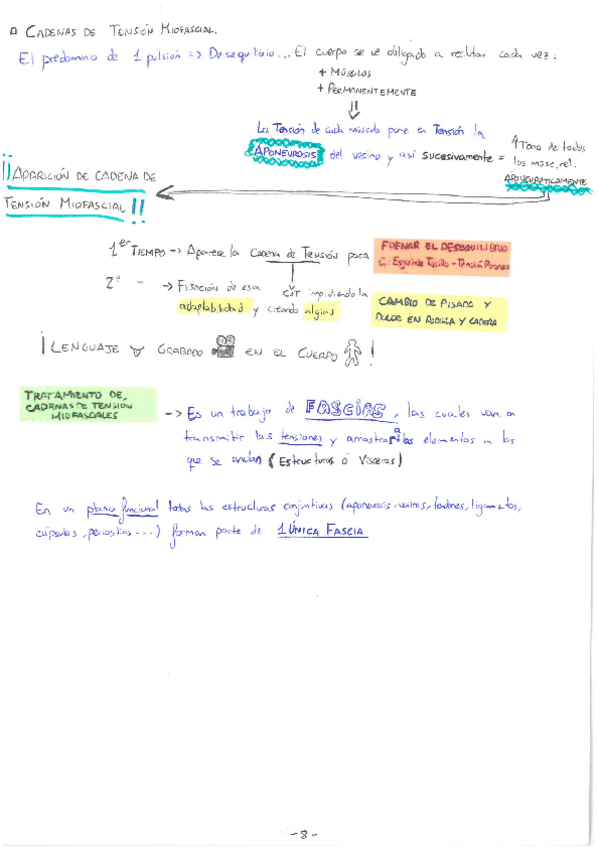 CADENAS DE TENSIÓN MIOFASCIAL.
El predominio de 1 pulsión => Desequilibrio... El cuerpo se ve obligado a reclutar cada vez:
+ MÚSCULOS
+ PERMANENTEMENTE
La Tensión de cada músculo pone en Tensión la
APONEUROSIS del vecino y así sucesivamente = ↑ Tono de todos
los músc. rel.
APONEURÓTICAMENTE
¡¡APARICIÓN DE CADENA DE
TENSIÓN MIOFASCIAL!!
1er TIEMPO -> Aparece la Cadena de Tensión para
FRENAR EL DESEQUILIBRIO
Ej. Esguince Tobillo - Tensión Peroneos
2º " -> Fijación de esa CDT impidiendo la
adaptabilidad y creando algias
CAMBIO DE PISADA Y
DOLOR EN RODILLA Y CADERA
¡LENGUAJE GRABADO EN EL CUERPO!
TRATAMIENTO DE
CADENAS DE TENSIÓN
MIOFASCIALES
-> Es un trabajo de FASCIAS, las cuales van a
transmitir las tensiones y arrastrar a los elementos a los
que se anclan (Estructuras ó Vísceras)
En un plano funcional todas las estructuras conjuntivas (aponeurosis, vainas, tendones, ligamentos,
cápsulas, periostios...) forman parte de 1 ÚNICA FASCIA
-8-